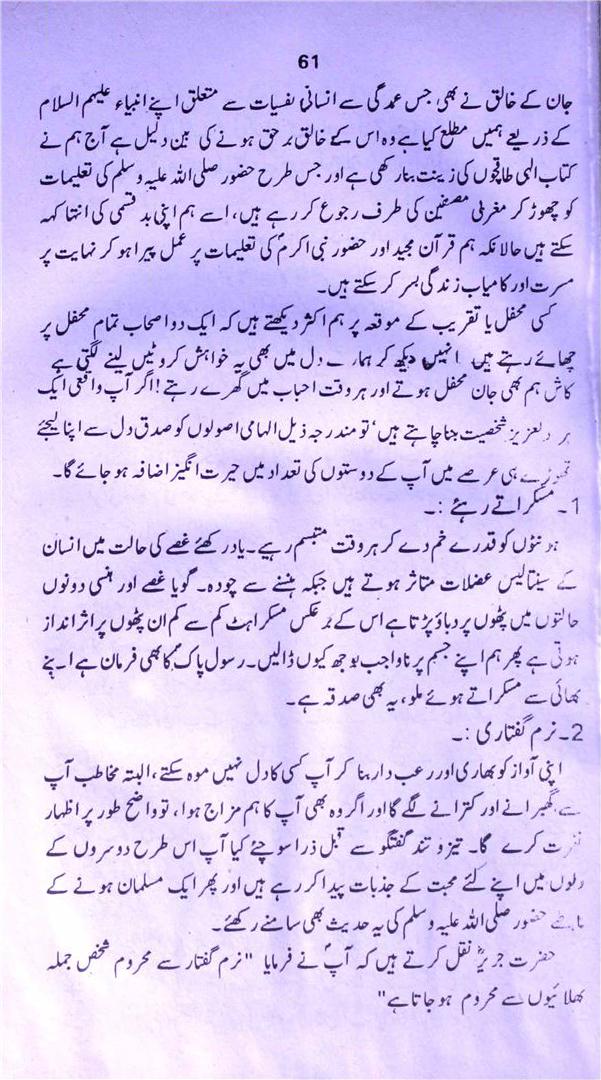 61
جان کے خالق نے بھی جس عمدگی سے انسانی نفسیات سے متعلق اپنے انبیاء علیہم السلام
کے ذریعے ہمیں مطلع کیا ہے وہ اس کے خالق برحق ہونے کی بین دلیل ہے آج ہم نے
کتاب الہی طاقچوں کی زینت بنا رکھی ہے اور جس طرح حضور صلی اللہ علیہ وسلم کی تعلیمات
کو چھوڑ کر مغربی مصنفین کی طرف رجوع کر رہے ہیں، اسے ہم اپنی بد قسمی کی انتہا کہہ
سکتے ہیں حالانکہ ہم قرآن مجید اور حضور نبی اکرمؐ کی تعلیمات پر عمل پیرا ہو کر نہایت پر
مسرت اور کامیاب زندگی بسر کر سکتے ہیں۔
کسی محفل یا تقریب کے موقعہ پر ہم اکثر دیکھتے ہیں کہ ایک دو اصحاب تمام محفل پر
چھائے رہتے ہیں انہیں دیکھ کر ہمارے دل میں بھی یہ خواہش کروٹیں لینے لگتی ہے
کاش ہم بھی جان محفل ہوتے اور ہر وقت احباب میں گھرے رہتے! اگر آپ واقعی ایک
ہر دلعزیز شخصیت بننا چاہتے ہیں، تو مندرجہ ذیل الہامی اصولوں کو صدق دل سے اپنا لیجئے
تھوڑے ہی عرصے میں آپ کے دوستوں کی تعداد میں حیرت انگیز اضافہ ہو جائے گا۔
1۔ مسکراتے رہئے :۔
ہونٹوں کو قدرے خم دے کر ہر وقت متبسم رہیے۔ یاد رکھئے غصے کی حالت میں انسان
کے سینتالیس عضلات متاثر ہوتے ہیں جبکہ ہنسنے سے چودہ۔ گویا غصے اور ہنسی دونوں
حالتوں میں پٹھوں پر دباؤ پڑتا ہے اس کے برعکس مسکراہٹ کم سے کم ان پٹھوں پر اثر انداز
ہوتی ہے پھر ہم اپنے جسم پر ناواجب بوجھ کیوں ڈالیں۔ رسول پاکؐ کا بھی فرمان ہے اپنے
بھائی سے مسکراتے ہوئے ملو، یہ بھی صدقہ ہے۔
2۔ نرم گفتاری :۔
اپنی آواز کو بھاری اور رعب دار بنا کر آپ کسی کا دل نہیں موہ سکتے، البتہ مخاطب آپ
سے گھبرانے اور کترانے لگے گا اور اگر وہ بھی آپ کا ہم مزاج ہوا، تو واضح طور پر اظہار
نفرت کرے گا۔ تیز و تند گفتگو سے قبل ذرا سوچئے کیا آپ اس طرح دوسروں کے
دلوں میں اپنے لئے محبت کے جذبات پیدا کر رہے ہیں اور پھر ایک مسلمان ہونے کے
ناطے حضور صلی اللہ علیہ وسلم کی یہ حدیث بھی سامنے رکھئے۔
حضرت جریرؓ نقل کرتے ہیں کہ آپؐ نے فرمایا "نرم گفتار سے محروم شخص جملہ
بھلائیوں سے محروم ہو جاتا ہے"